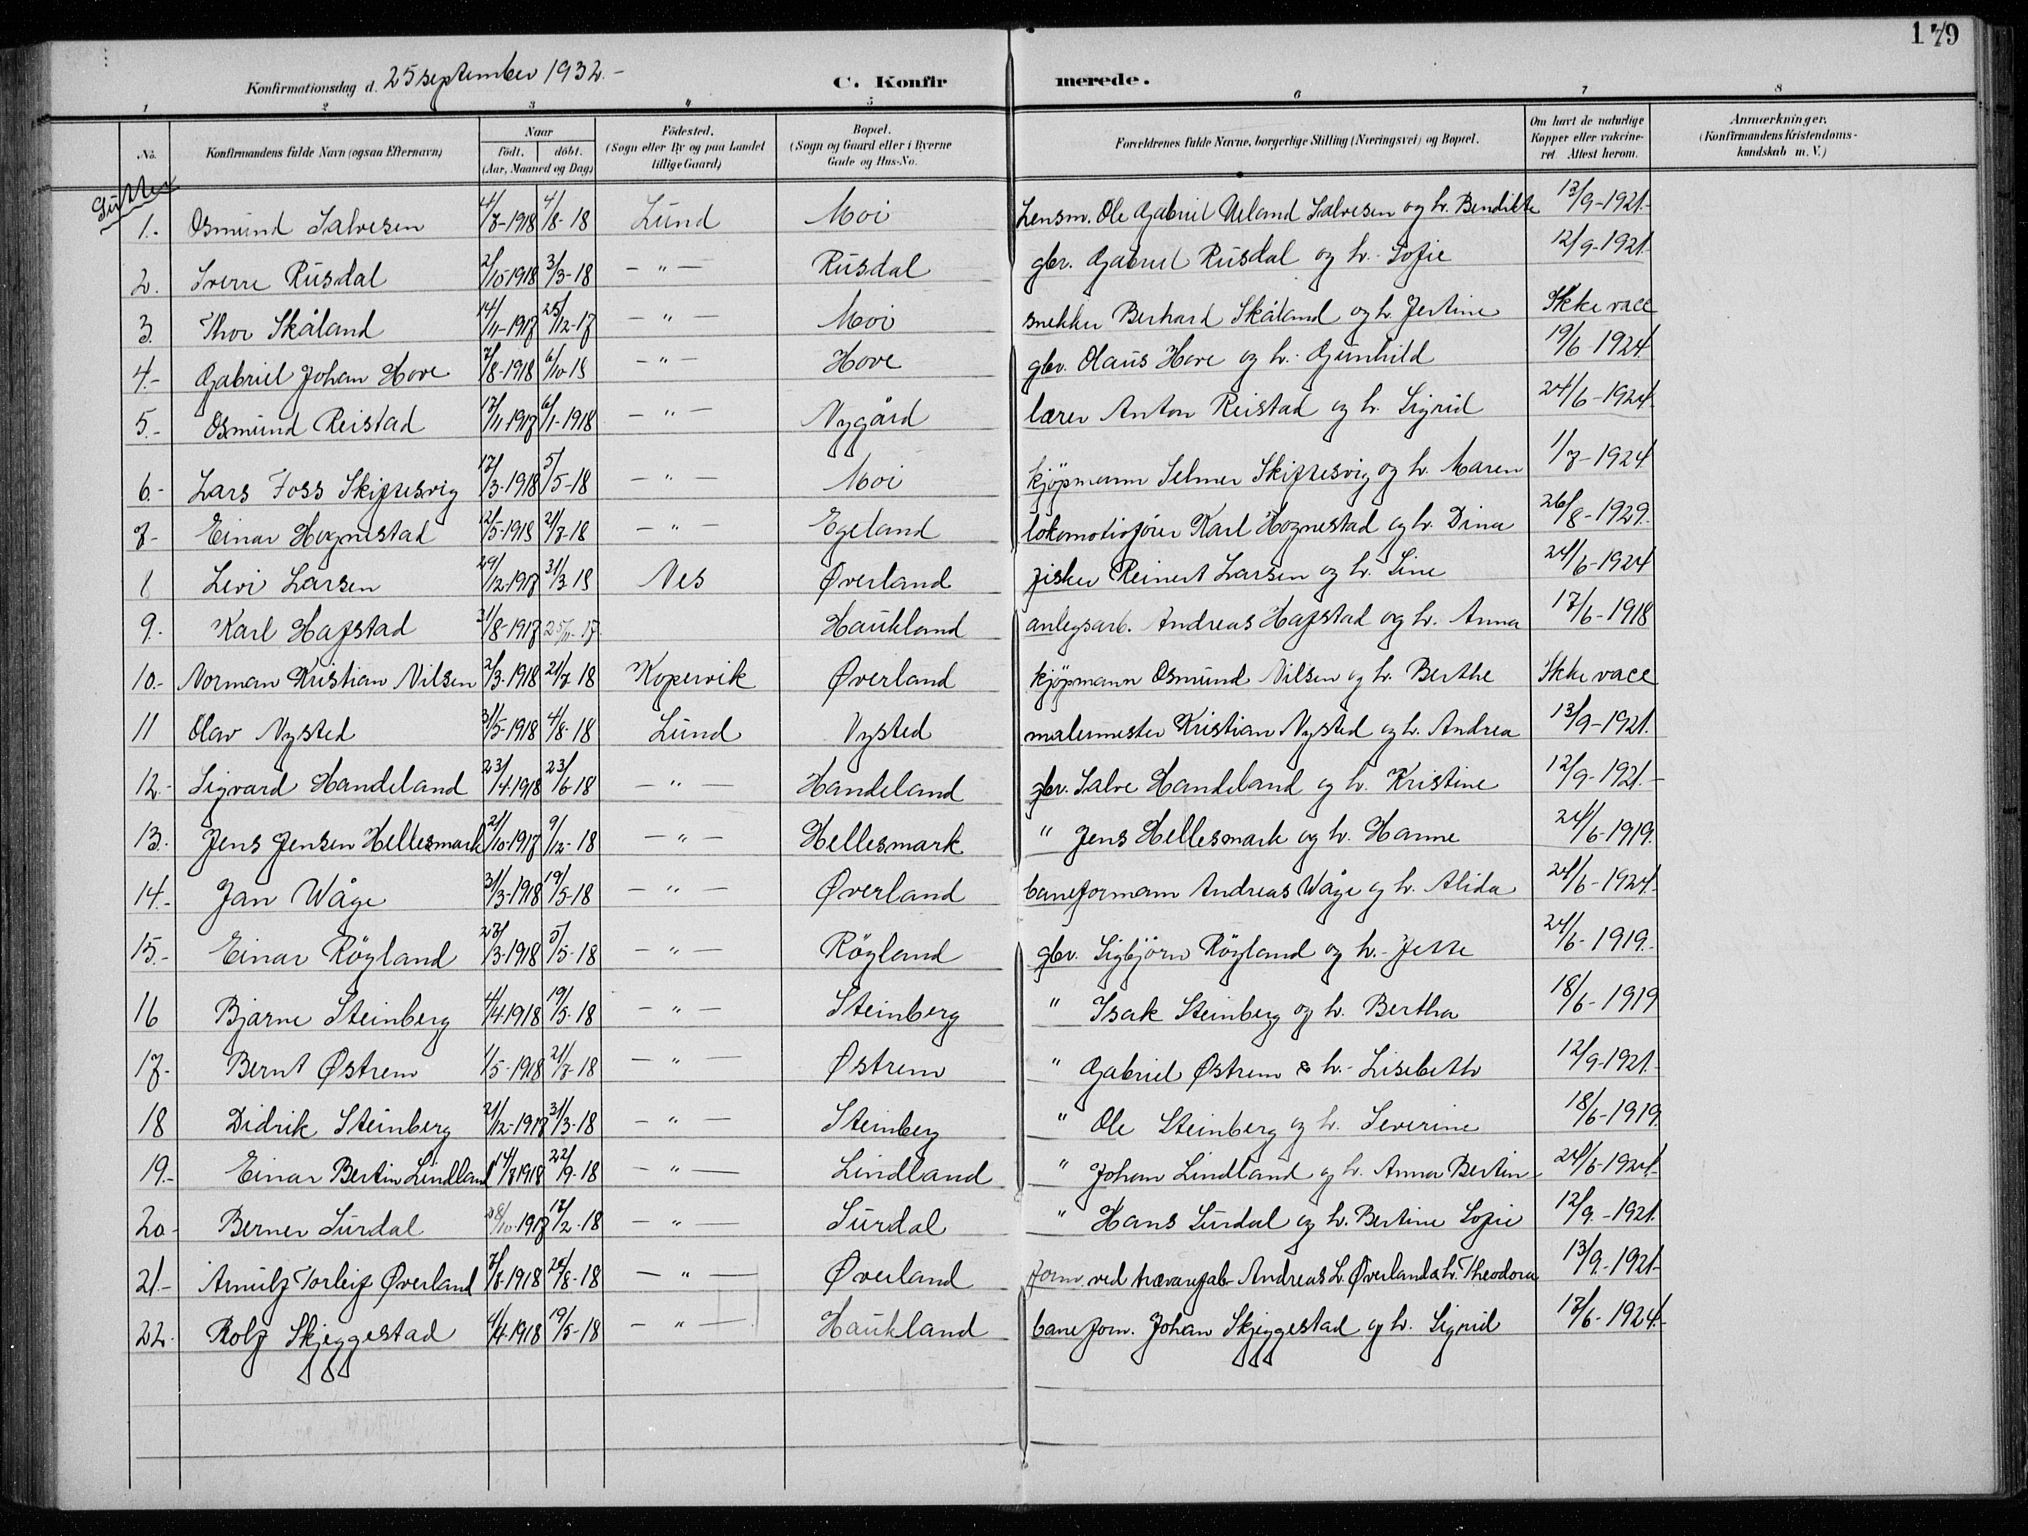 179
Konfirmationsdag d. 25 september 1932.-
C. Konfirmerede.
1 2 3 4 5 6 7 8
No.
Konfirmandens fulde Navn (ogsaa Efternavn)
Naar
födt. döbt.
(Aar, Maaned og Dag)
Födested.
(Sogn eller By og paa Landet tillige Gaard)
Bopæl.
(Sogn og Gaard eller i Byerne Gade og Hus-No.
Forældrenes fulde Navne, borgerlige Stilling (Næringsvei) og Bopæl.
Om havt de naturlige Kopper eller vakcineret Attest herom.
Anmærkninger.
(Konfirmandens Kristendomskundskab m. V.)
Gutter
1.- Osmund Salvesen 4/7-1918 4/8-18 Lund Moi Lensm. Ole Gabriel Ueland Salvesen og h. Bendikte 13/9-1921.-
2. Sverre Rusdal 2/10-1918 3/3-18 - " - Rusdal gbr. Gabriel Rusdal og h. Sofie 12/9-1921.
3. Thor Skåland 14/11-1917 25/12-17 - " - Moi snekker Berhard Skåland og h. Jertine Ikke vacc
4.- Gabriel Johan Hove 7/8-1918 6/10-18 - " - Hove gbr. Olaus Hove og h. Gunhild 19/6-1924
5.- Osmund Reistad 17/11-1917 6/1-1918 - " - Nygård lærer Anton Reistad og h. Sigrid 24/6-1924.
6.- Lars Foss Skiftesvig 17/3-1918 5/5-18 - " - Moi kjöpmann Selmer Skiftesvig og h. Maren 1/7-1924
7- Einar Hognestad 12/5-1918 21/7-18 - " - Egeland lokomotivförer Karl Hognestad og h. Dina 26/8-1929.
8 Levi Larsen 29/12-1917 31/3-18 Nes Øverland fisker Reinert Larsen og h. Sine 24/6-1924
9. Karl Hafstad 31/8-1917 25/11-17. Haukland anlegsarb. Andreas Hafstad og h. Anna 17/6-1918
10.- Norman Kristian Nilsen 2/3-1918 21/7-18 Kopervik Øverland kjöpmann Osmund Nilsen og h. Berthe Ikke vacc
11 Olav Nysted 31/5-1918 4/8-18 Lund Nysted malermester Kristian Nysted og h. Andrea 13/9-1921.
12.- Sigvard Handeland 23/4-1918 23/6-18 - " - Handeland gbr. Salve Handeland og h. Kristine 12/9-1921.-
13. Jens Jensen Hellesmark 21/10-1917 9/12-18 - " - Hellesmark " Jens Hellesmark og h. Hanne 24/6-1919.
14.- Jan Våge 31/3-1918 19/5-18 - " - Øverland baneformann Andreas Våge og h. Alida 24/6-1924.
15.- Einar Röyland 23/3-1918 5/5-18 - " - Röyland gbr. Sigbjörn Röyland og h. Jette 24/6-1919.-
16 Bjarne Steinberg 4/4-1918 19/5-18 - " - Steinberg " Isak Steinberg og h. Bertha 18/6-1919
17.- Bernt Østrem 1/5-1918 21/7-18 - " - Østrem " Gabriel Østrem & h.- Lisebeth 12/9-1921.
18 Didrik Steinberg 21/12-1917 31/3-18 - " - Steinberg " Ole Steinberg og h. Severine 18/6-1919.
19.- Einar Bertin Lindland 14/7-1918 22/9-18 - " - Lindland " Johan Lindland og h. Anna Bertin 24/6-1924.
20.- Berner Surdal 28/10-1917 17/2-18 - " - Surdal " Hans Surdal og h. Bertine Sofie 12/9-1921.
21.- Arnulf Torleif Øverland 7/8-1918 28/8-18 - " - Øverland form. ved trævarefab- Andreas L. Øverland & h. Theodora 13/9-1921.
22. Rolf Skjeggestad 4/4-1918 19/5-18 - " - Haukland baneform. Johan Skjeggestad og h. Sigrid 17/6-1924.-